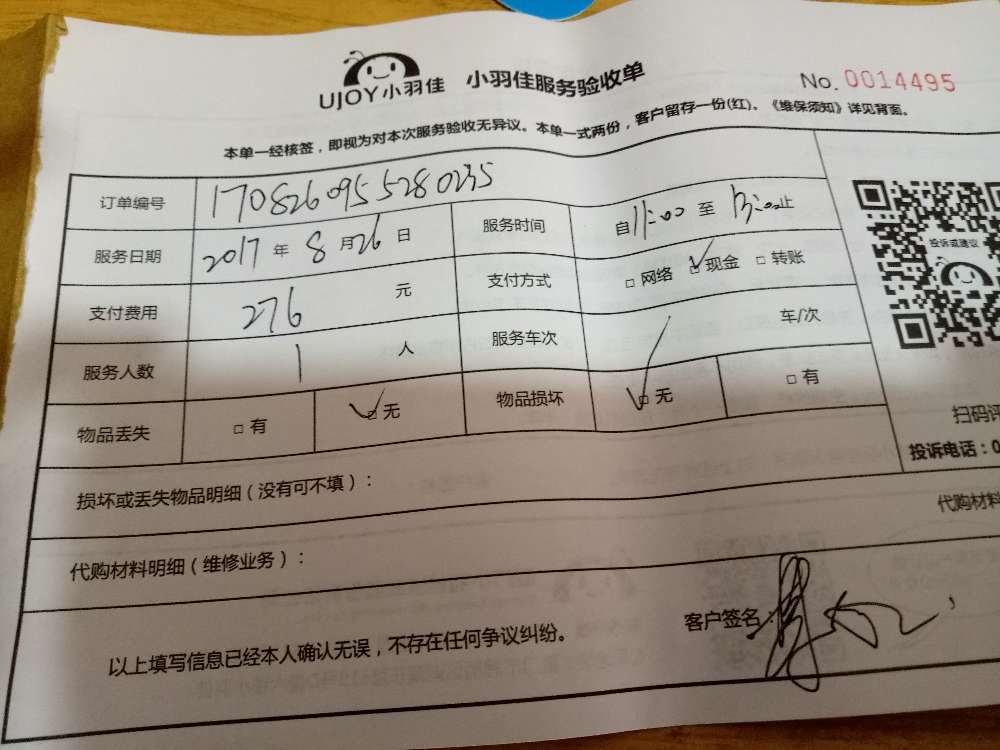 UJOY小羽佳 小羽佳服务验收单 No. 0014495
本单一经核签，即视为对本次服务验收无异议。本单一式两份，客户留存一份(红)。《维保须知》详见背面。
订单编号 1708260955280235
服务日期 2017 年 8 月 26 日 服务时间 自 11:00 至 13:00 止
支付费用 276 元 支付方式 □ 网络 ☑ 现金 □ 转账
服务人数 1 人 服务车次 / 车/次
物品丢失 □ 有 ☑ 无 物品损坏 ☑ 无 □ 有
投诉或建议
扫码评
投诉电话：0
损坏或丢失物品明细（没有可不填）：
代购材料明细（维修业务）： 代购材料
以上填写信息已经本人确认无误，不存在任何争议纠纷。 客户签名：